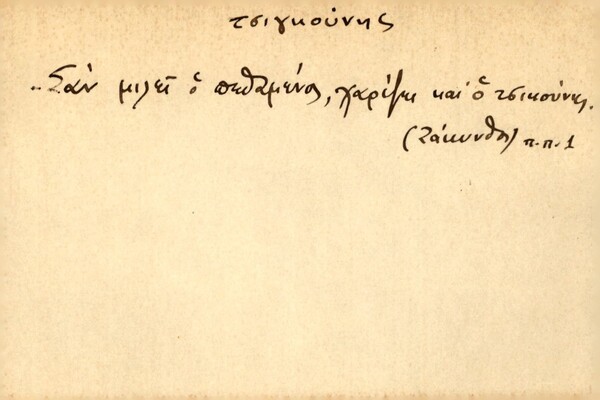 τσιγκούνης
"Σάν μιλεῖ ὁ πεθαμένος, χαρίζει καί ὁ τσικούνης.
(Ζάκυνθος) π.π.1